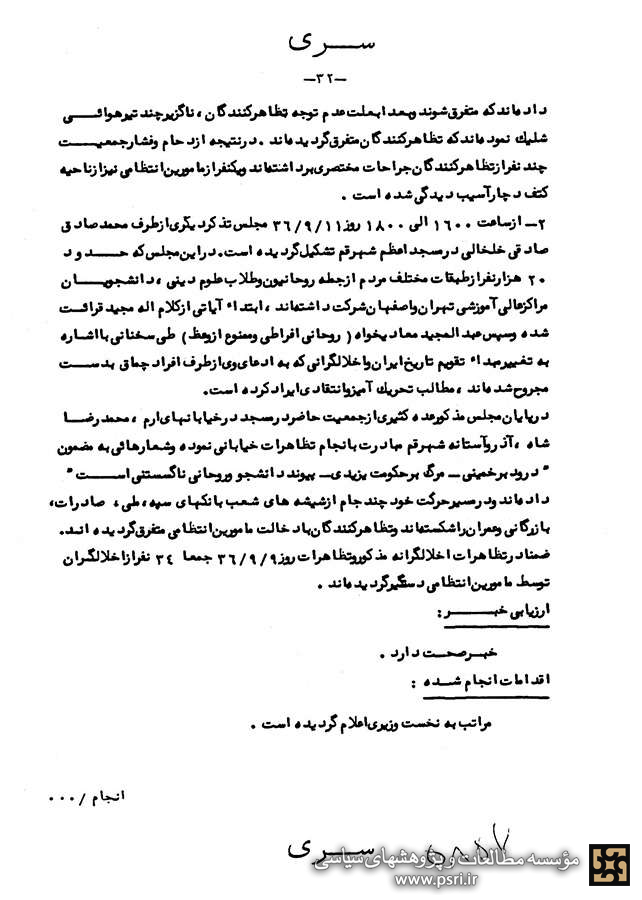 ســـری
—۳۲—
داده‌اند که متفرق شوند وبعدا بعلت عدم توجه تظاهرکنندگان ، ناگزیر چند تیرهوائـــی
شلیک نموده‌اند که تظاهرکنندگان متفرق گردیده‌اند . درنتیجه ازدحام وفشارجمعیـــت
چند نفر از تظاهرکنندگان جراحات مختصری برداشته‌اند ویکنفر از مامورین انتظامی نیز از ناحیه
کتف دچار آسیب دیدگی شده است .
۲— از ساعت ۱۶۰۰ الی ۱۸۰۰ روز ۳۶/۹/۱۱ مجلس تذکر دیگری از طرف محمد صادق
صادقی خلخالی در مسجد اعظم شهرقم تشکیل گردیده است. دراین مجلس که حـــدود
۲۰ هزار نفر از طبقات مختلف مردم از جمله روحانیون وطلاب علوم دینی ، دانشجویـــان
مراکزعالی آموزشی تهران واصفهان شرکت داشته‌اند ، ابتداء آیاتی از کلام اله مجید قرائـت
شده وسپس عبدالمجید معادیخواه ( روحانی افراطی وممنوع ازوعظ ) طی سخنانی بااشاره
به تغییر مبداء تقویم تاریخ ایران واخلالگرانی که به ادعای وی از طرف افراد چماق بدســـت
مجروح شده‌اند ، مطالب تحریک آمیز وانتقادی ایراد کرده است.
درپایان مجلس مذکور عده کثیری از جمعیت حاضر در مسجد درخیابانهای ارم ، محمدرضـــا
شاه ، آذر وآستانه شهرقم مبادرت بانجام تظاهرات خیابانی نموده وشعارهائی به مضمون
" درود برخمینی — مرگ برحکومت یزیدی — پیوند دانشجو وروحانی ناگسستنی اســـت "
داده‌اند ودرمسیرحرکت خود چند جام از شیشه های شعب بانکهای سپه ، ملی ، صادرات،
بازرگانی وعمران راشکسته‌اند وتظاهرکنندگان بادخالت مامورین انتظامی متفرق گردیده انـد.
ضمنا درتظاهرات اخلالگرانه مذکور وتظاهرات روز ۳۶/۹/۹ جمعا ۳۴ نفر از اخلالگـــران
توسط مامورین انتظامی دستگیر گردیده‌اند .
ارزیابی خبـــر :
خبـر صحـت دارد .
اقدامات انجام شـــده :
مراتب به نخست وزیری اعلام گردیده است .
انجام /۰۰۰
ســـری
مؤسسه مطالعات و پژوهشهای سیاسی
www.psri.ir